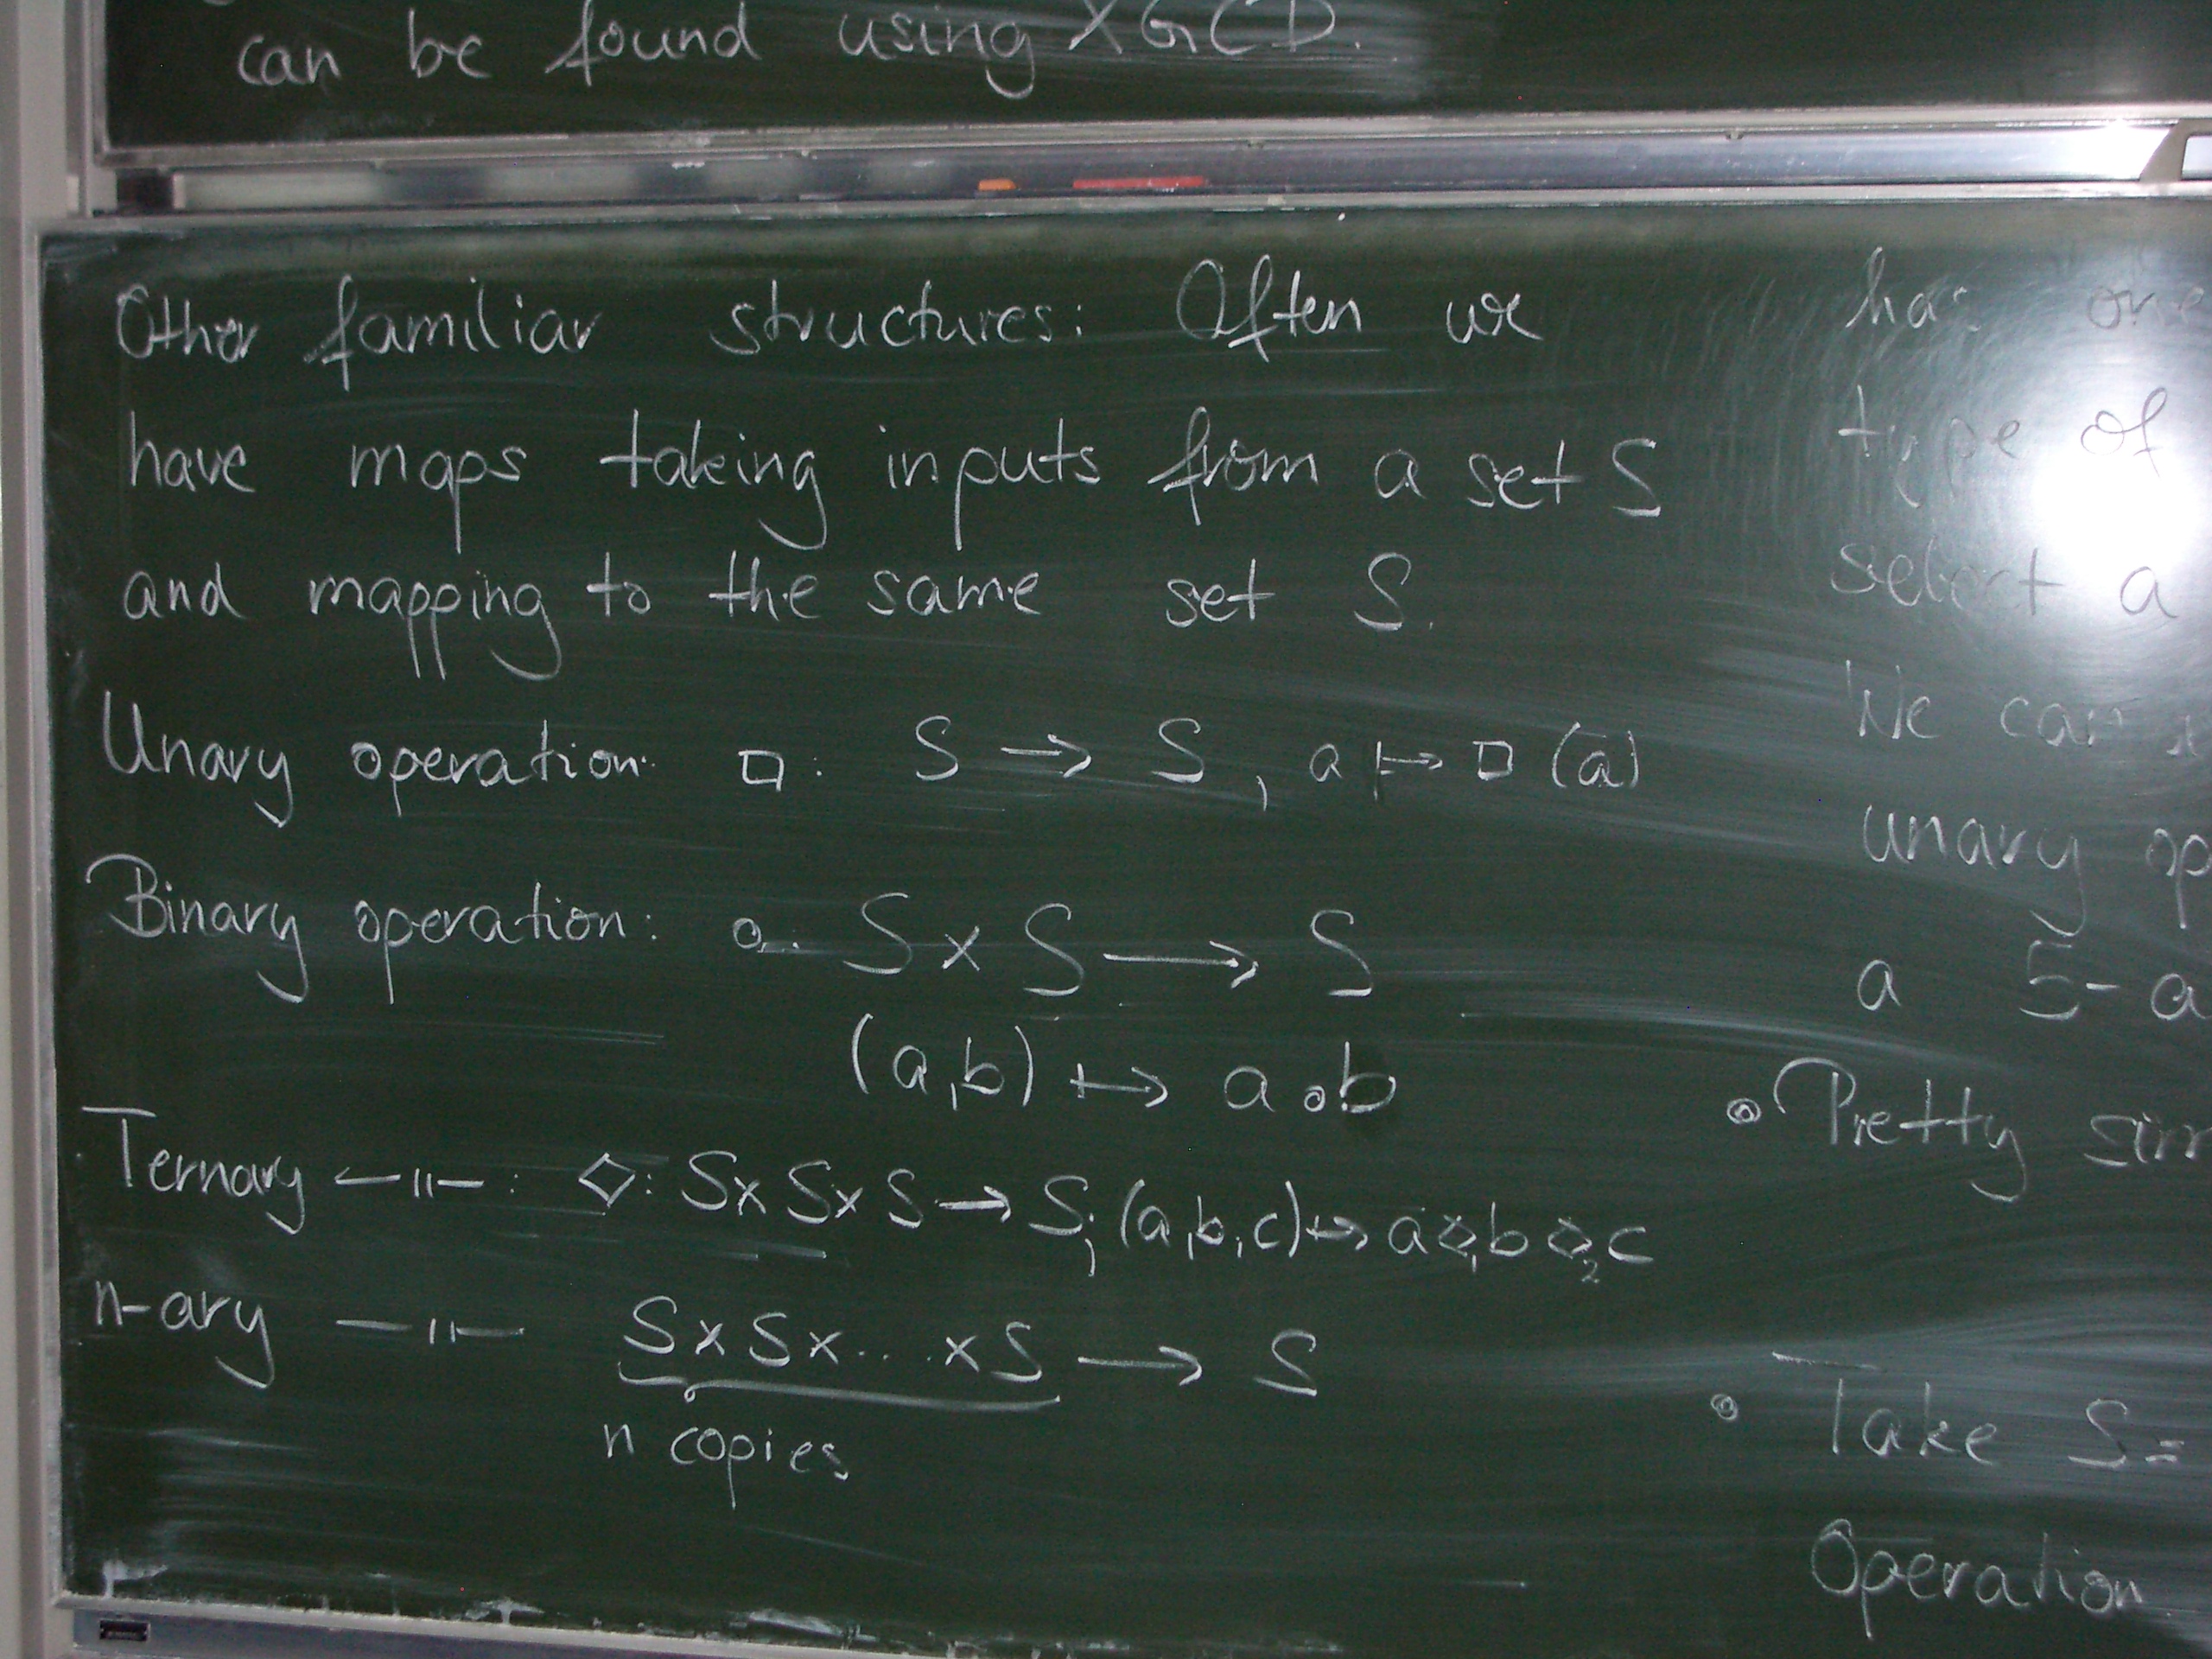 can be found using XGCD.
Other familiar structures: Often we
have maps taking inputs from a set S
and mapping to the same set S.
Unary operation: □: S → S, a ↦ □(a)
Binary operation: ∘: S × S → S
(a,b) ↦ a∘b
Ternary —〃—: ◇: S×S×S → S; (a,b,c) ↦ a◇₁b◇₂c
n-ary —〃— S×S×...×S → S
n copies
has one
type of
select a
We can
unary op
a 5-a
∘ Pretty sim
∘ Take S=
Operation